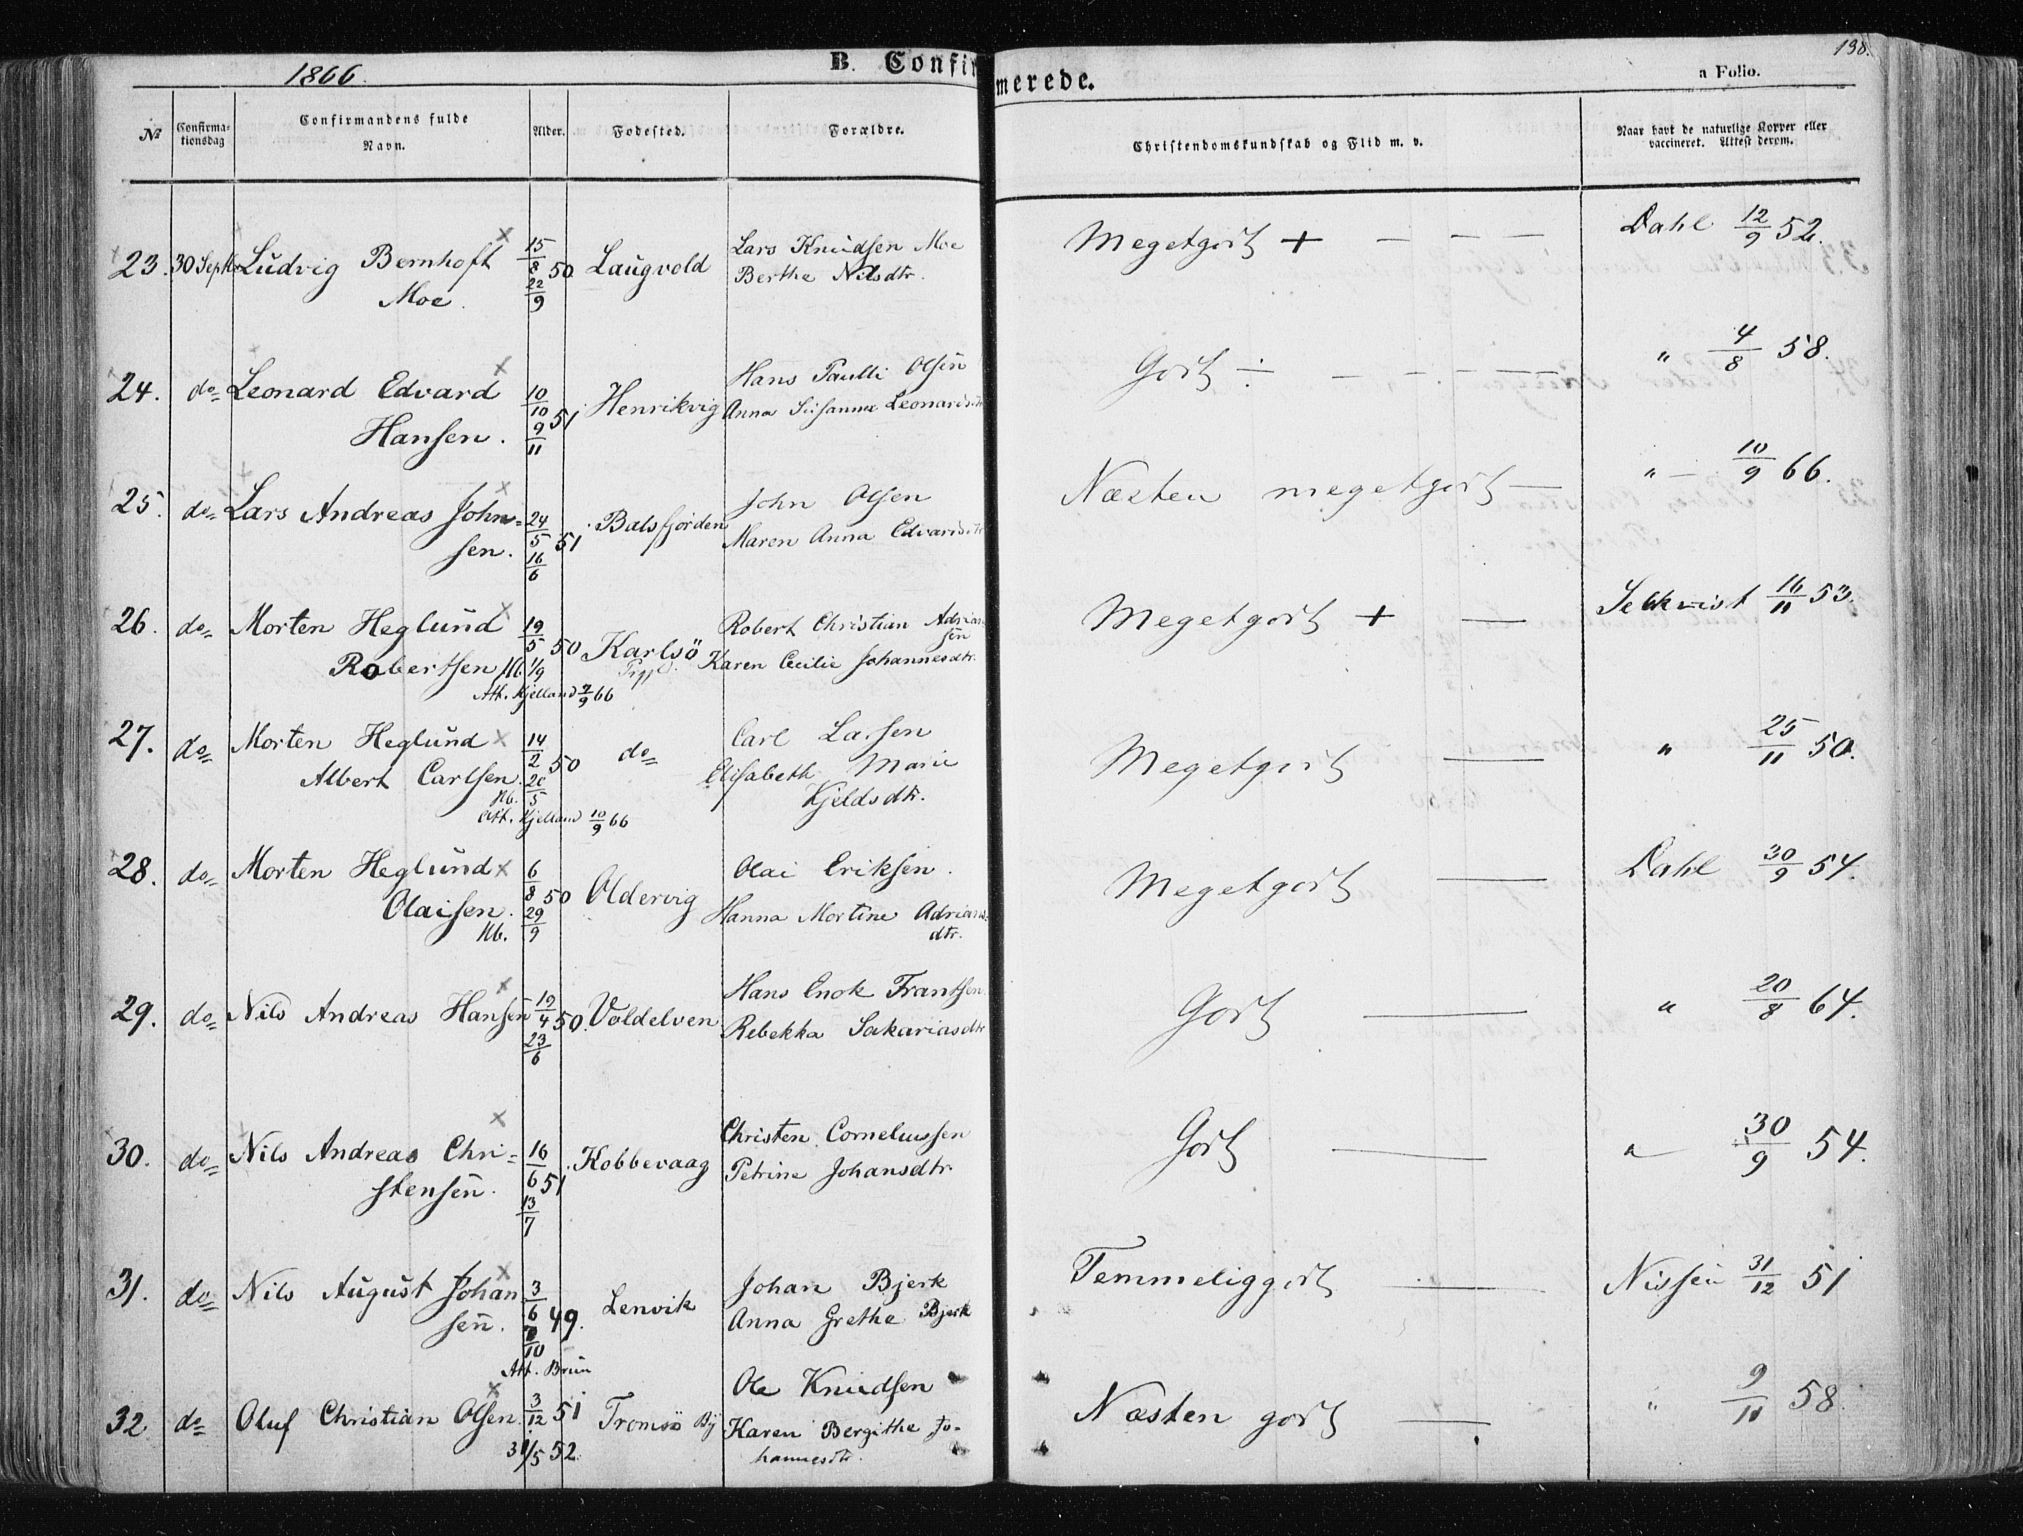 1866.
B. Confirmerede.
138.
a Folio.
No
Confirmationsdag
Confirmandens fulde Navn.
Alder.
Fødested.
Forældre.
Christendomskundskab og Flid m. v.
Naar havt de naturlige Kopper eller vaccineret. Attest derom.
23. 30 Septbr Ludvig Bernhoft Moe. 15/8 50 22/9 Laugvold Lars Knudsen Moe Berthe Nilsdtr. Megetgodt + — — — Dahl 12/9 52.
24. do= Leonard Edvard Hansen. 10/10 51 9/11 Henrikvig Hans Paulli Olsen Anna Susanna Leonardsdtr Godt ÷ — — — " 4/8 58.
25. do= Lars Andreas John=sen. 24/5 51 16/6 Balsfjorden John Olsen Maren Anna Edvardsdtr Næsten megetgodt — " — 10/9 66.
26. do= Morten Heglund Robertsen Nb. 19/5 50 1/9 Karlsö Robert Christian Adriansen Karen Cecilie Johannesdtr. Megetgodt + — Selkvist 16/11 53.
Att. Kjelland 7/9 66
27. do= Morten Heglund Albert Carlsen. Nb. 14/2 50 20/5 do= Carl Larsen Elisabeth Marie Kjeldsdtr. Megetgodt — " 25/11 50.
Att. Kjelland 10/9 66
28. do= Morten Heglund Olaisen. Nb. 6/8 50 29/9 Oldervig Olai Eriksen. Hanna Mortine Adrians=dtr. Megetgodt — Dahl 30/9 54.
29. do= Nils Andreas Hansen 19/4 50. 23/6 Voldelven Hans Enok Frantsen Rebekka Sakariasdtr Godt — " 20/8 64.
30. do= Nils Andreas Chri=stensen. 16/6 51 13/7 Kobbevaag Christen Corneliussen Petrine Johansdtr. Godt — " 30/9 54.
31. do= Nils August Johansen. 3/6 49. 7/10 Lenvik Johan Bjerk Anna Grethe Bjerk Temmeliggodt — Nissen 31/12 51
Att. Brun
32 do= Oluf Christian Olsen. 3/12 51 31/5 52 Tromsö By Ole Knudsen Karen Bergithe Jo-hannesdtr. Næsten godt — " 9/11 58.